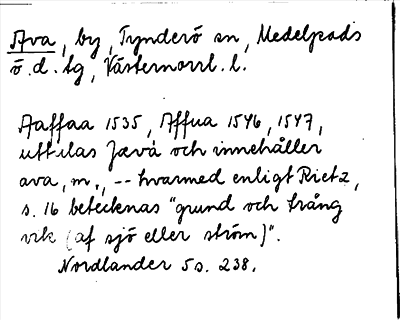 Ava, by, Tynderö sn, Medelpads
ö. d. tg, Västernorrl. l.
Aaffaa 1535, Affua 1546, 1547,
uttalas Java och innehåller
ava, m., -- hvarmed enligt Rietz,
s. 16 betecknas "grund och trång
vik (af sjö eller ström)".
Nordlander 5 s. 238.